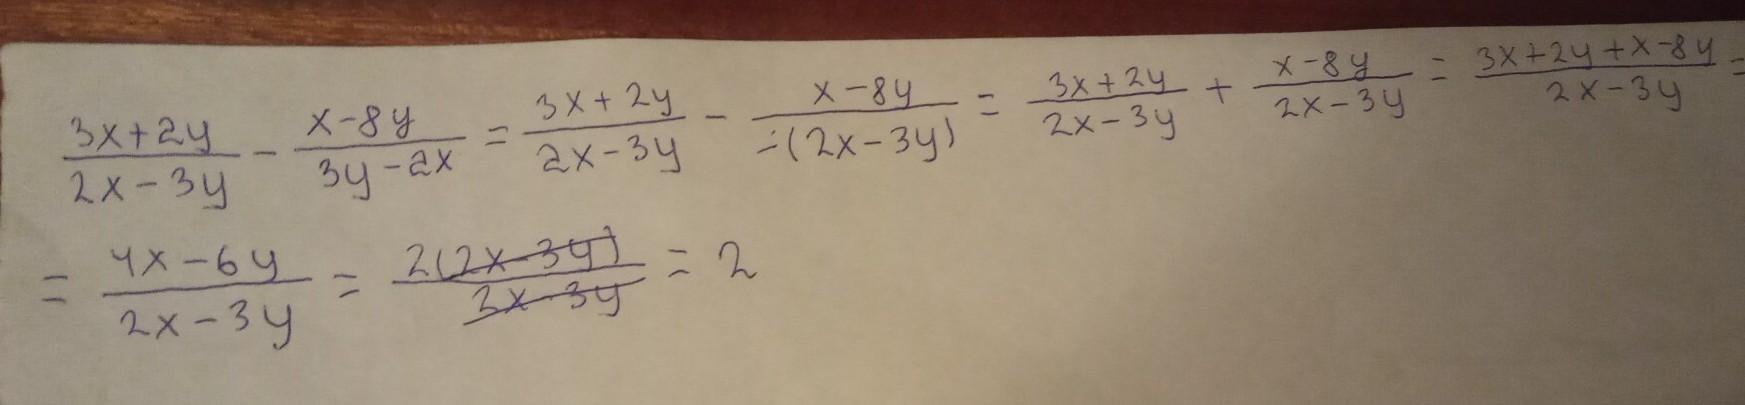 \frac{3x+2y}{2x-3y} - \frac{x-8y}{3y-2x} = \frac{3x+2y}{2x-3y} - \frac{x-8y}{-(2x-3y)} = \frac{3x+2y}{2x-3y} + \frac{x-8y}{2x-3y} = \frac{3x+2y+x-8y}{2x-3y} =
= \frac{4x-6y}{2x-3y} = \frac{2(2x-3y)}{2x-3y} = 2